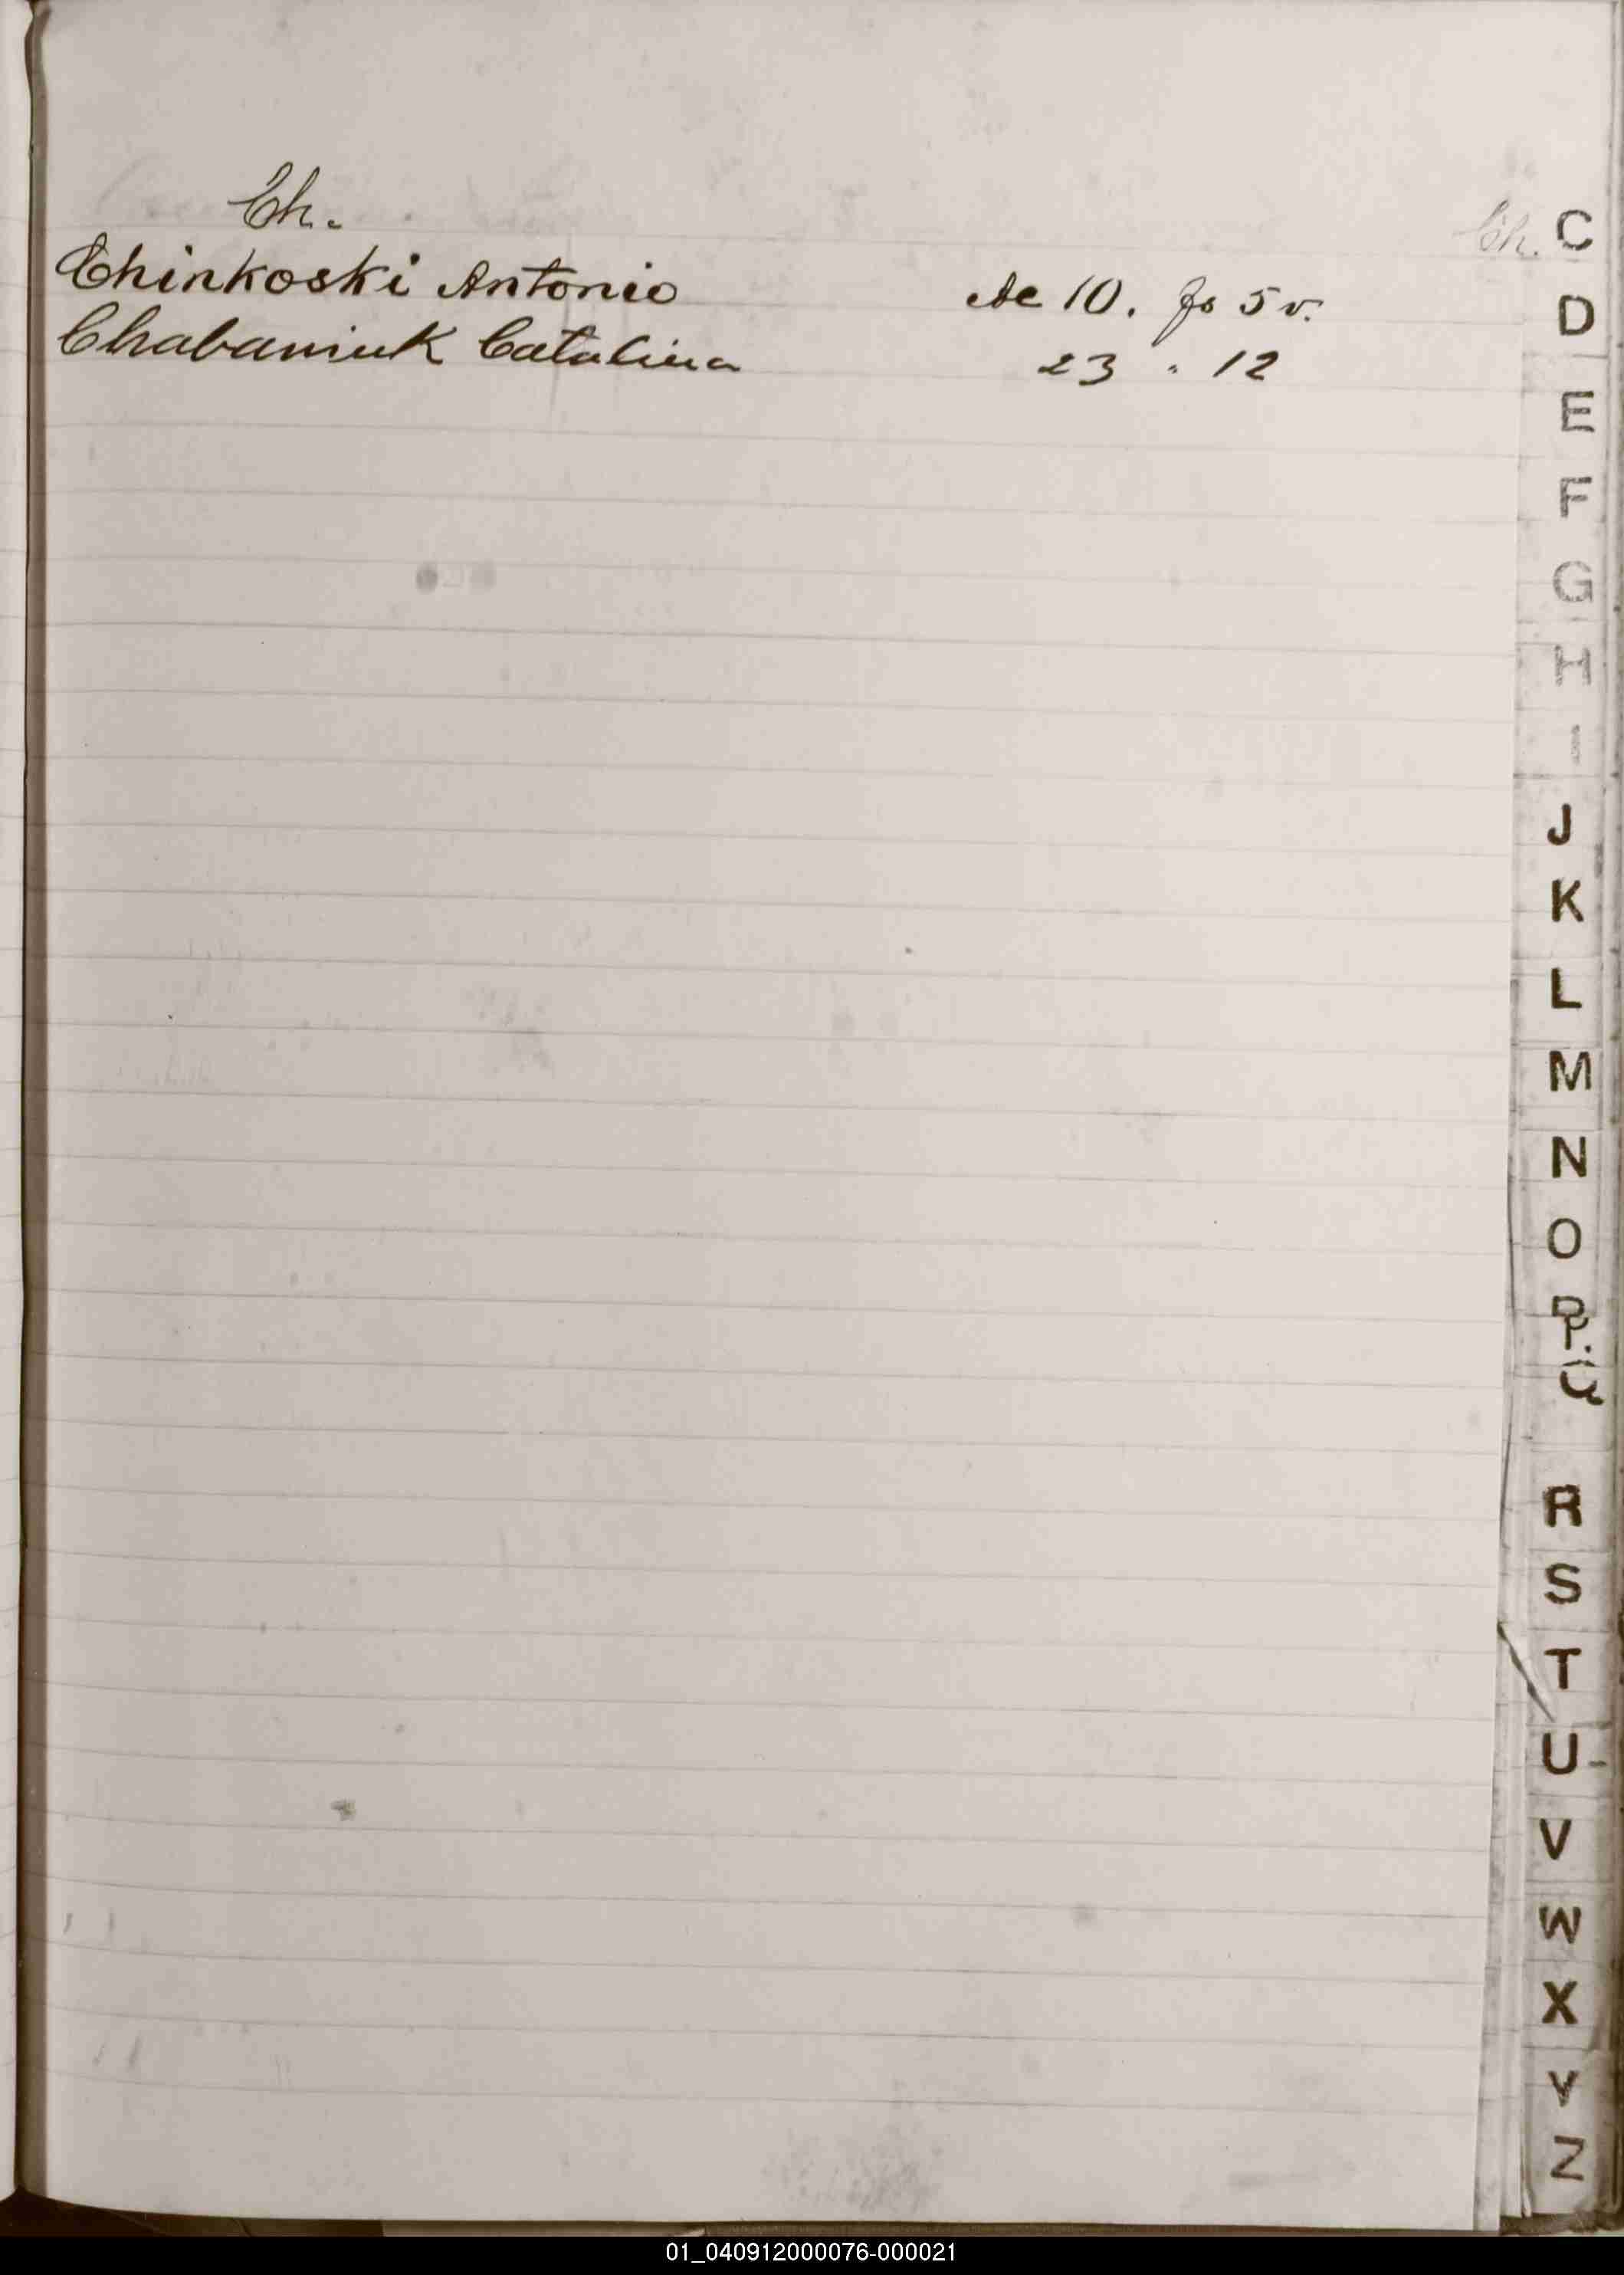 Ch.
Ch. C
Chinkoski Antonio Ac 10. fo 5 v.
Chabaniuk Catalina 23 " 12
D
E
F
G
H
I
J
K
L
M
N
O
P.
Q
R
S
T
U
V
W
X
Y
Z
01_040912000076-000021